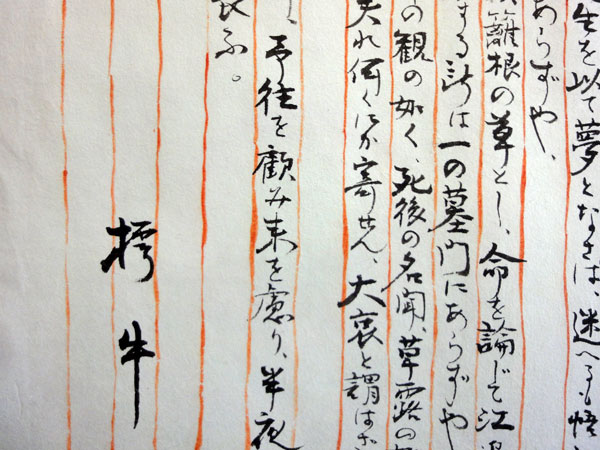 生を以て夢となさば、迷へるも悟
あらずや、
籬根の草とし、命を論じて江
する所は一の墓門にあらずや
の観の如く、死後の名聞、草露の
夫れ何くにか寄せん、大哀と謂はざ
予往を顧み来を慮り、半夜
ふ。
樗牛